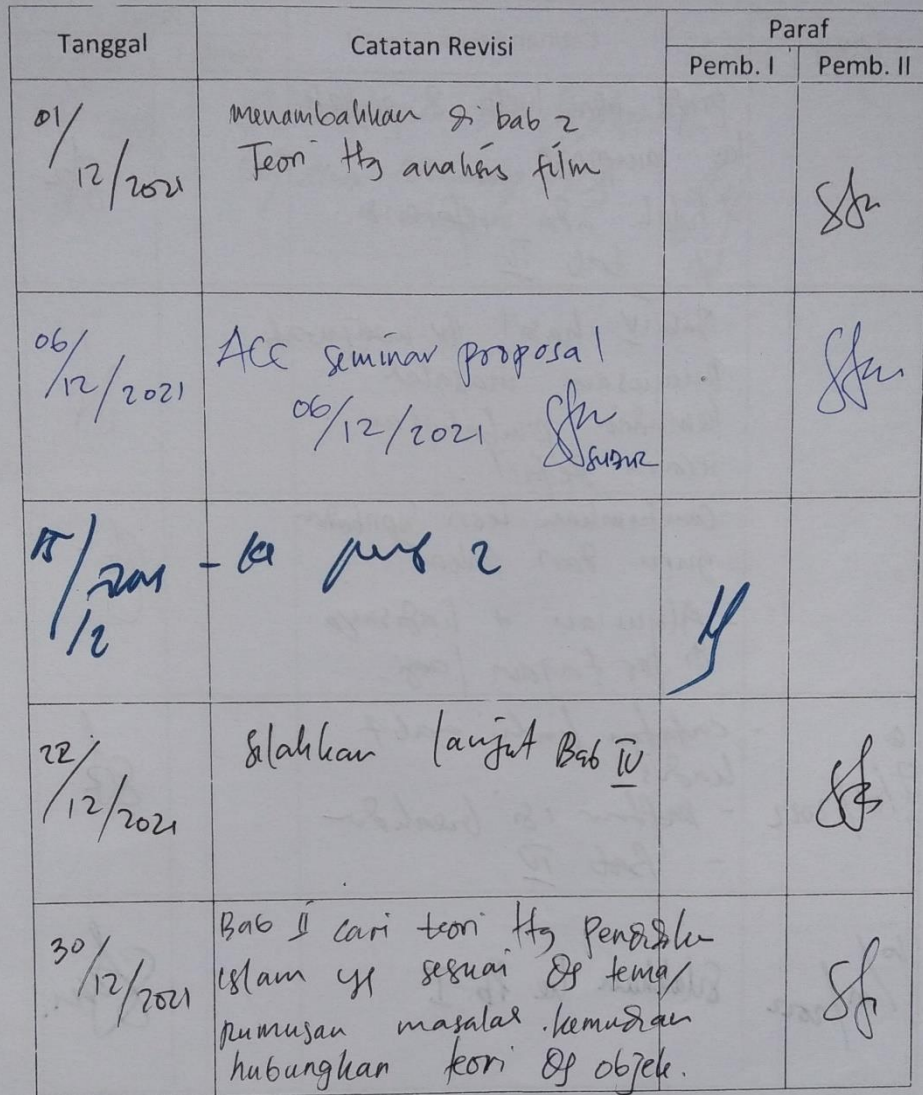 Tanggal Catatan Revisi Paraf
Pemb. I Pemb. II
01/12/2021 menambahkan di bab 2
Teori ttg analisis film
06/12/2021 Acc seminar proposal
06/12/2021
15/12/2021 - ke 2
22/12/2021 silahkan lanjut Bab IV
30/12/2021 Bab II cari teori ttg Pendidikan
islam yg sesuai dg tema/
rumusan masalah. kemudian
hubungkan teori dg objek.